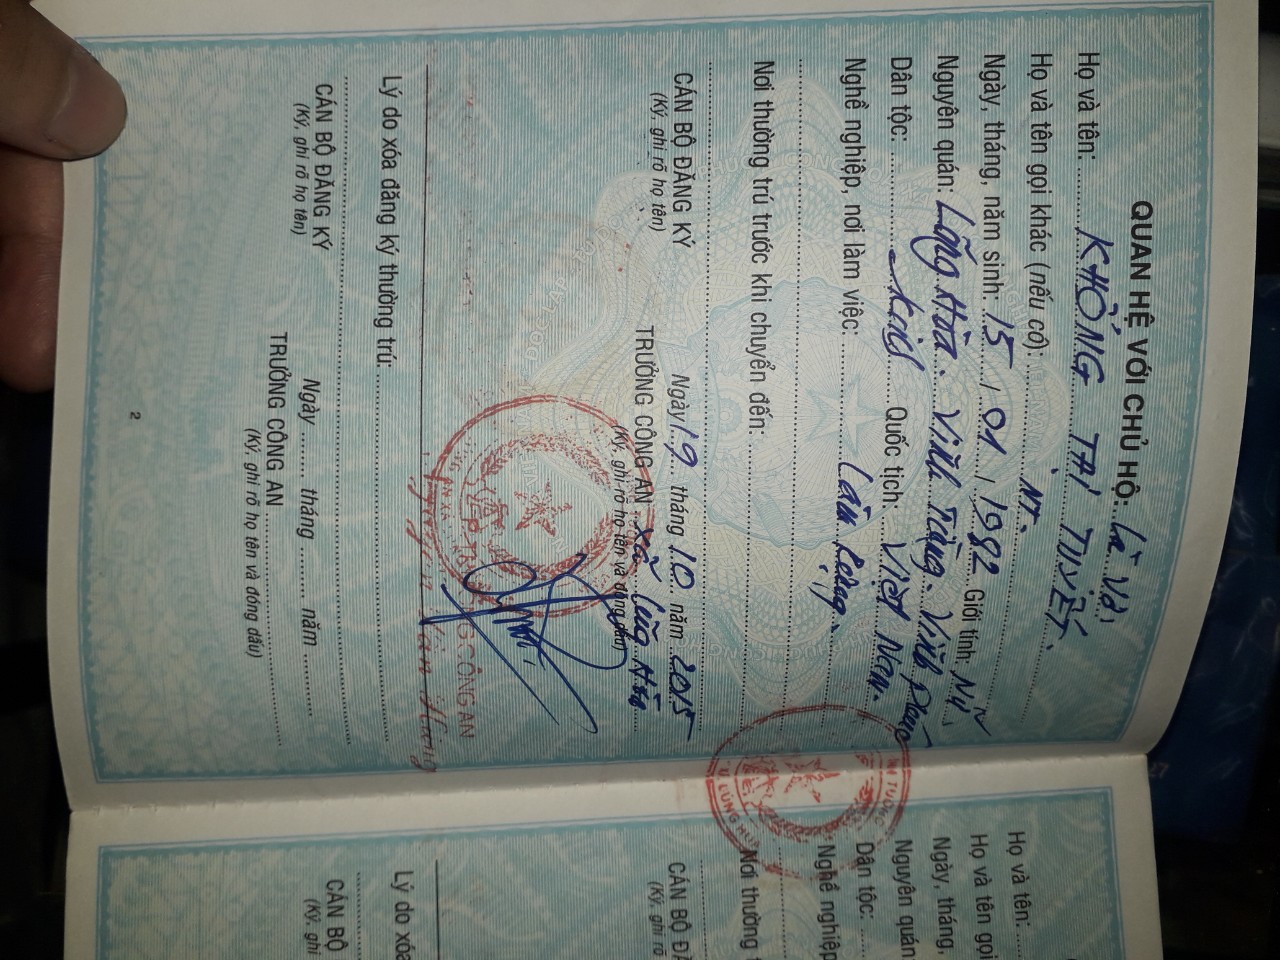 QUAN HỆ VỚI CHỦ HỘ: Là Vợ
Họ và tên: KHỔNG THỊ TUYẾT
Họ và tên gọi khác (nếu có): NT.
Ngày, tháng, năm sinh: 15 / 01 / 1982 Giới tính: Nữ
Nguyên quán: Lũng Hòa. Vĩnh Tường. Vĩnh Phúc
Dân tộc: Kinh Quốc tịch: Việt Nam.
Nghề nghiệp, nơi làm việc: Làm Ruộng.
Nơi thường trú trước khi chuyển đến:
Ngày 19 tháng 10 năm 2015
CÁN BỘ ĐĂNG KÝ
(Ký, ghi rõ họ tên)
TRƯỞNG CÔNG AN xã Lũng Hòa
(Ký, ghi rõ họ tên và đóng dấu)
G CÔNG AN
Lý do xóa đăng ký thường trú:
Ngày tháng năm
CÁN BỘ ĐĂNG KÝ
(Ký, ghi rõ họ tên)
TRƯỞNG CÔNG AN
(Ký, ghi rõ họ tên và đóng dấu)
2
Họ và tên:
Họ và tên gọi
Ngày, tháng,
Nguyên quán
Dân tộc:
Nghề nghiệp
Nơi thường t
CÁN BỘ ĐĂ
(Ký, ghi rõ
Lý do xóa
CÁN BỘ
(Ký, ghi